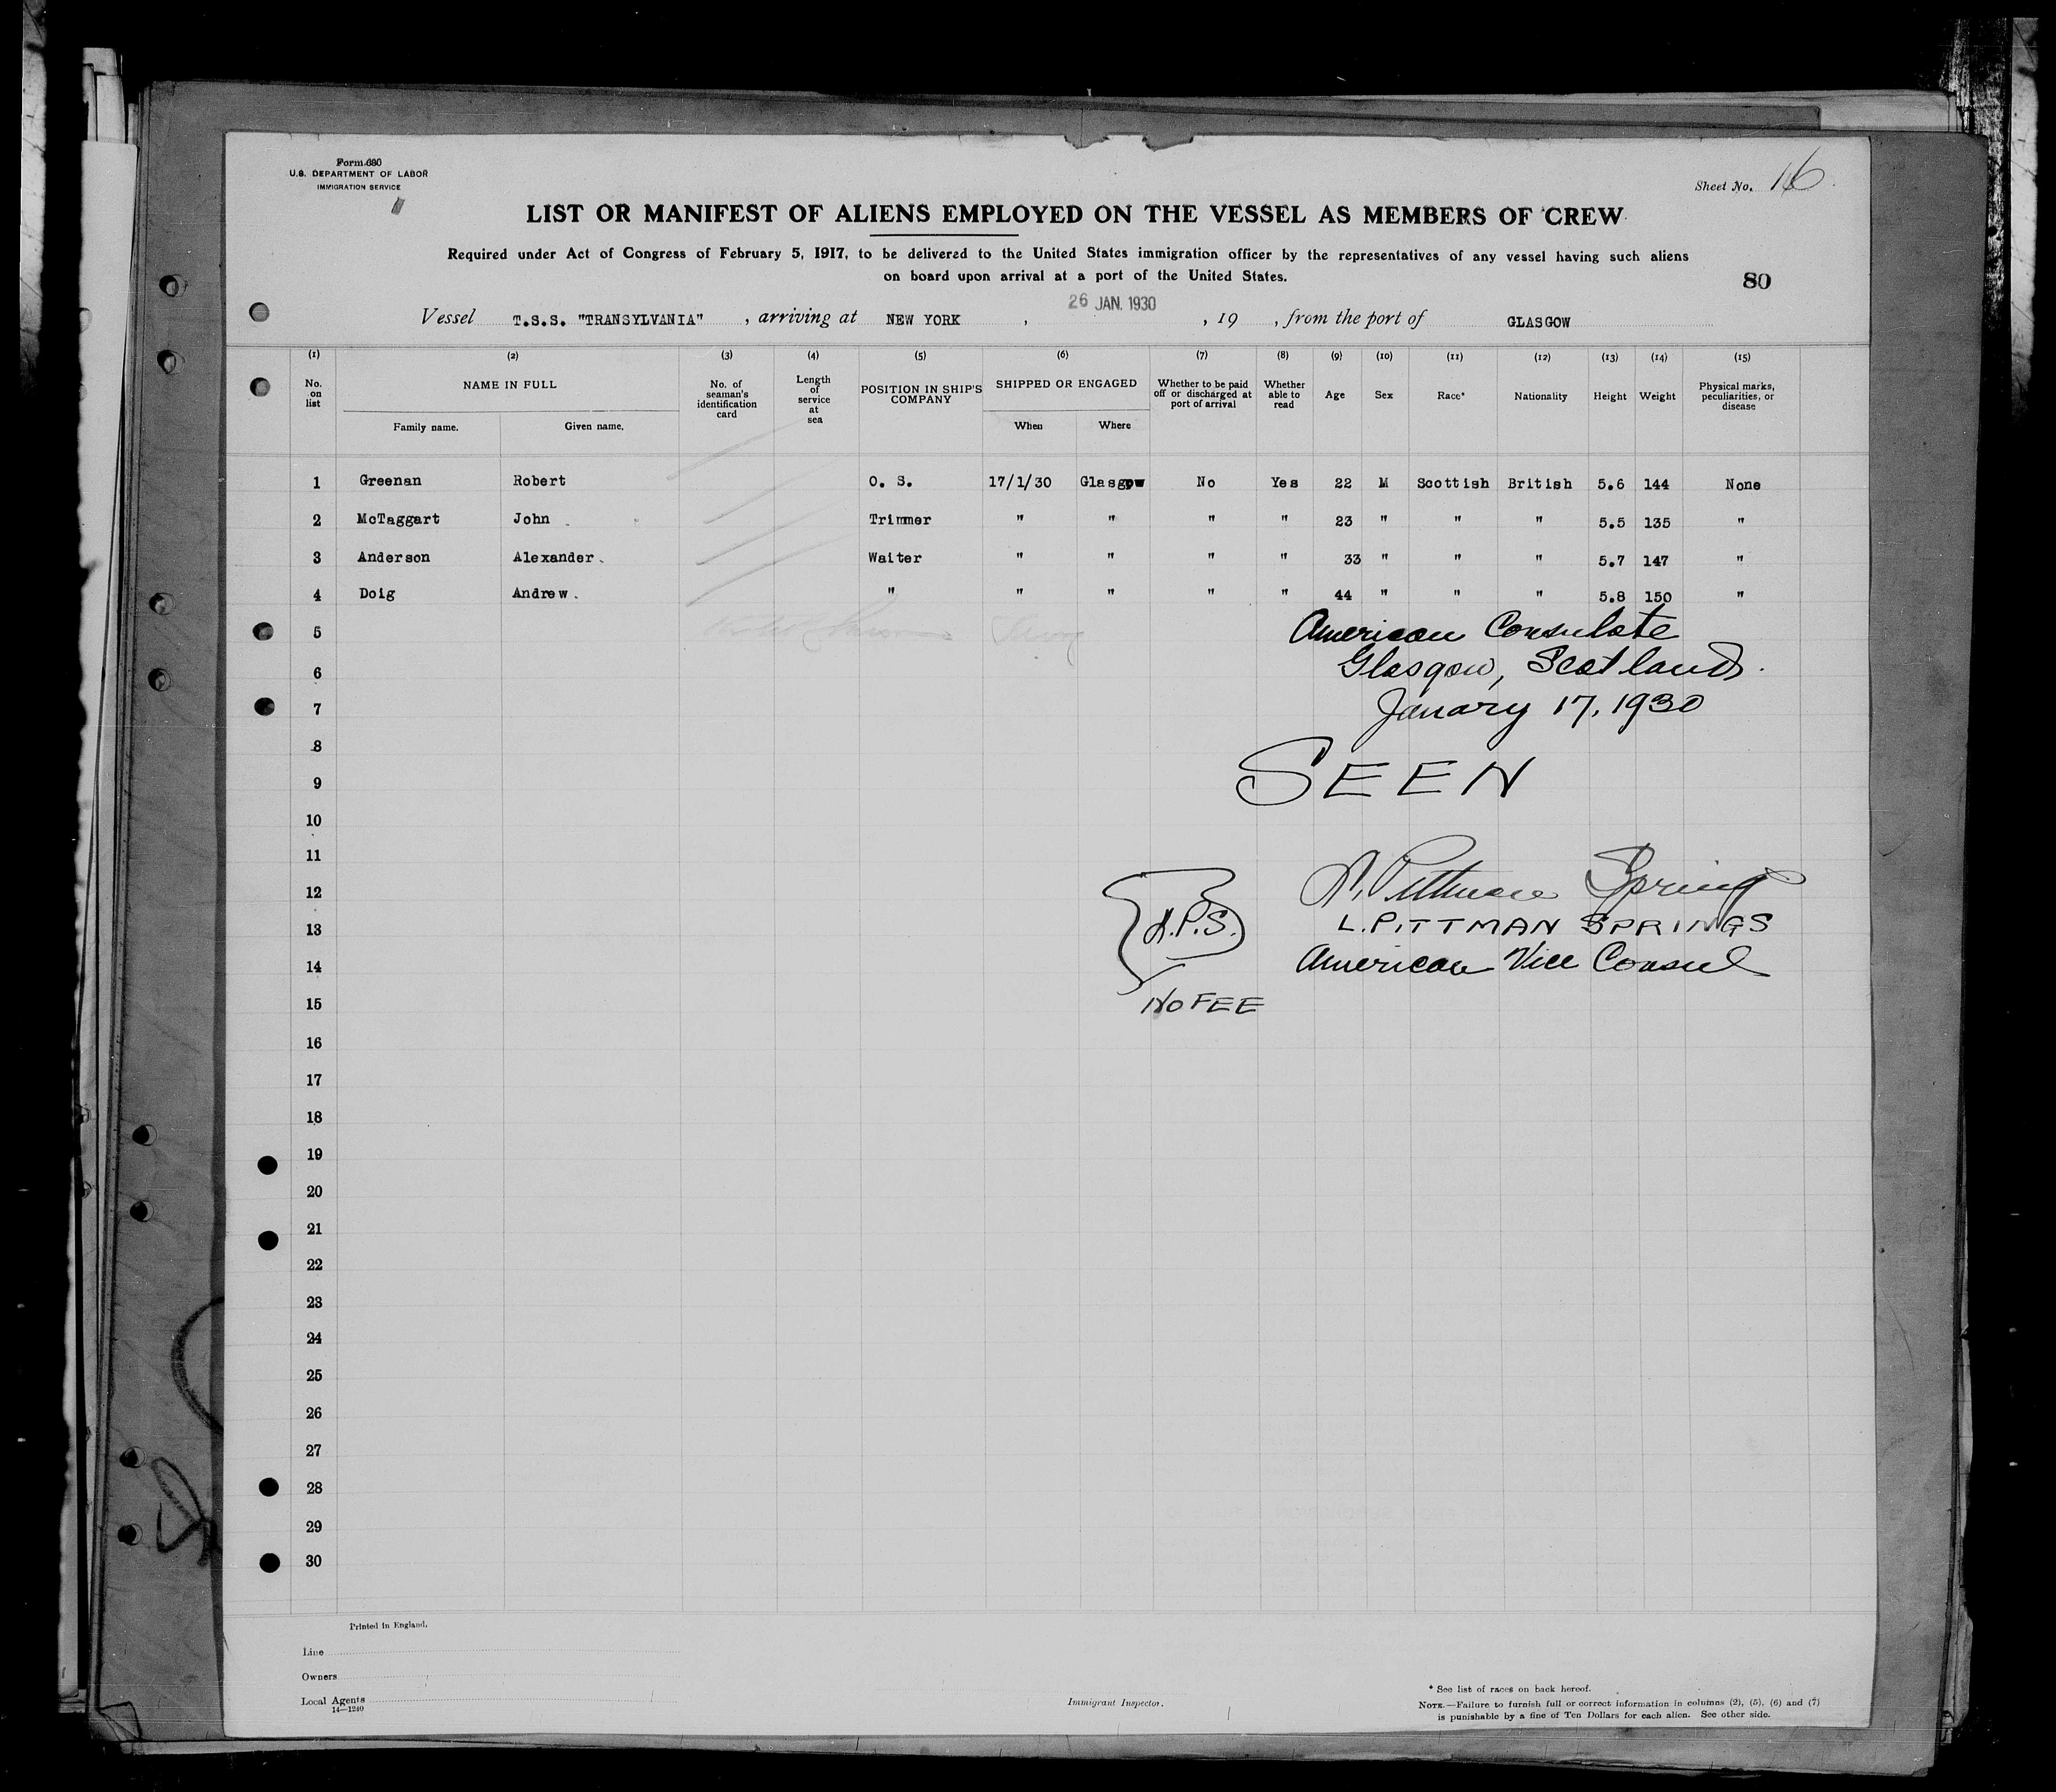 Form 680
U.S. DEPARTMENT OF LABOR
IMMIGRATION SERVICE
Sheet No. 16
LIST OR MANIFEST OF ALIENS EMPLOYED ON THE VESSEL AS MEMBERS OF CREW
Required under Act of Congress of February 5, 1917, to be delivered to the United States immigration officer by the representatives of any vessel having such aliens
on board upon arrival at a port of the United States.
80
26 JAN. 1930
Vessel T.S.S. "TRANSYLVANIA", arriving at NEW YORK, , 19 , from the port of GLASGOW
(1) (2) (3) (4) (5) (6) (7) (8) (9) (10) (11) (12) (13) (14) (15)
No. on list NAME IN FULL No. of seaman's identification card Length of service at sea POSITION IN SHIP'S COMPANY SHIPPED OR ENGAGED Whether to be paid off or discharged at port of arrival Whether able to read Age Sex Race* Nationality Height Weight Physical marks, peculiarities, or disease
Family name. Given name. When Where
1 Greenan Robert O. S. 17/1/30 Glasgow No Yes 22 M Scottish British 5.6 144 None
2 McTaggart John Trimmer " " " " 23 " " " 5.5 135 "
3 Anderson Alexander. Waiter " " " " 33 " " " 5.7 147 "
4 Doig Andrew. " " " " " 44 " " " 5.8 150 "
5
American Consulate
6
Glasgow, Scotland.
7
January 17, 1930
8
9
SEEN
10
11
12
L. Pittman Springs
13
L.P.S.
L. PITTMAN SPRINGS
14
American Vice Consul
15
NO FEE
16
17
18
19
20
21
22
23
24
25
26
27
28
29
30
Printed in England.
Line
Owners
Local Agents
14—1240
Immigrant Inspector.
* See list of races on back hereof.
NOTE.—Failure to furnish full or correct information in columns (2), (5), (6) and (7)
is punishable by a fine of Ten Dollars for each alien. See other side.